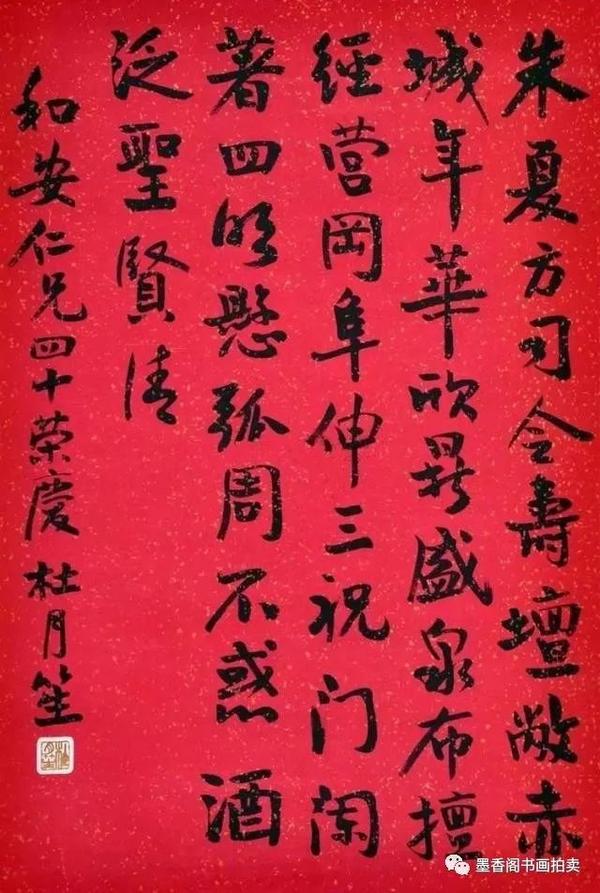 朱夏方司令壽壇敞赤
城年華欣鼎盛泉布擅
經营岡阜伸三祝门闾
著四明懸弧周不惑酒
泛聖賢清
和安仁兄四十荣慶 杜月笙
墨香阁书画拍卖